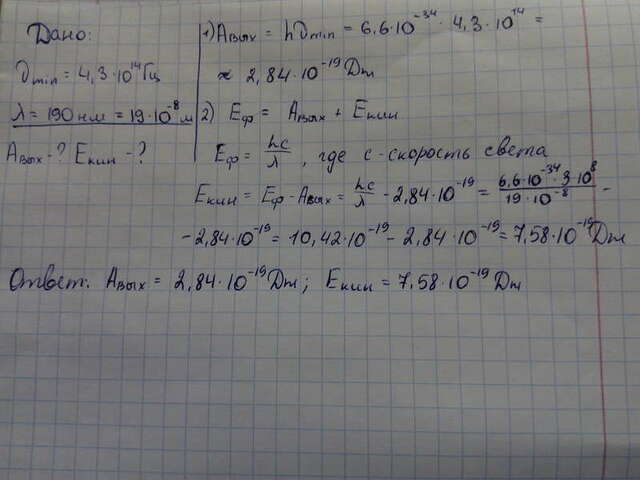 Дано:
νmin = 4,3·10¹⁴ Гц
λ = 190 нм = 19·10⁻⁸ м
Aвых - ? Eкин - ?
1) Aвых = hνmin = 6,6·10⁻³⁴ · 4,3·10¹⁴ =
≈ 2,84·10⁻¹⁹ Дж
2) Eф = Aвых + Eкин
Eф = hc/λ, где c - скорость света
Eкин = Eф - Aвых = hc/λ - 2,84·10⁻¹⁹ = 6,6·10⁻³⁴·3·10⁸/19·10⁻⁸ -
- 2,84·10⁻¹⁹ = 10,42·10⁻¹⁹ - 2,84·10⁻¹⁹ = 7,58·10⁻¹⁹ Дж
Ответ: Aвых = 2,84·10⁻¹⁹ Дж; Eкин = 7,58·10⁻¹⁹ Дж